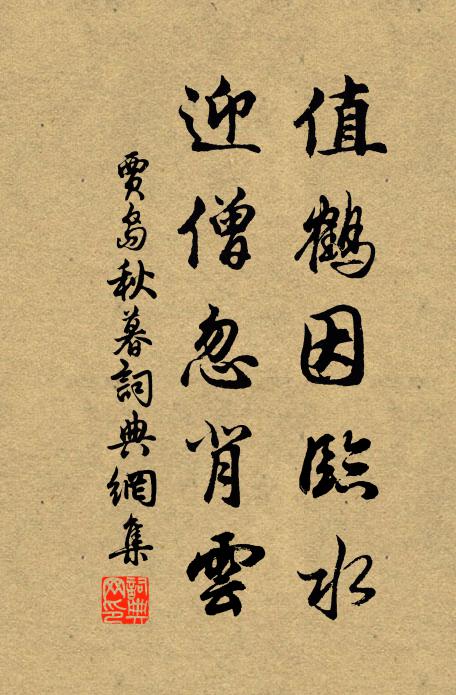 值鶴因臨水
迎僧忽背雲
賈島秋暮詞典網集
詞典網印